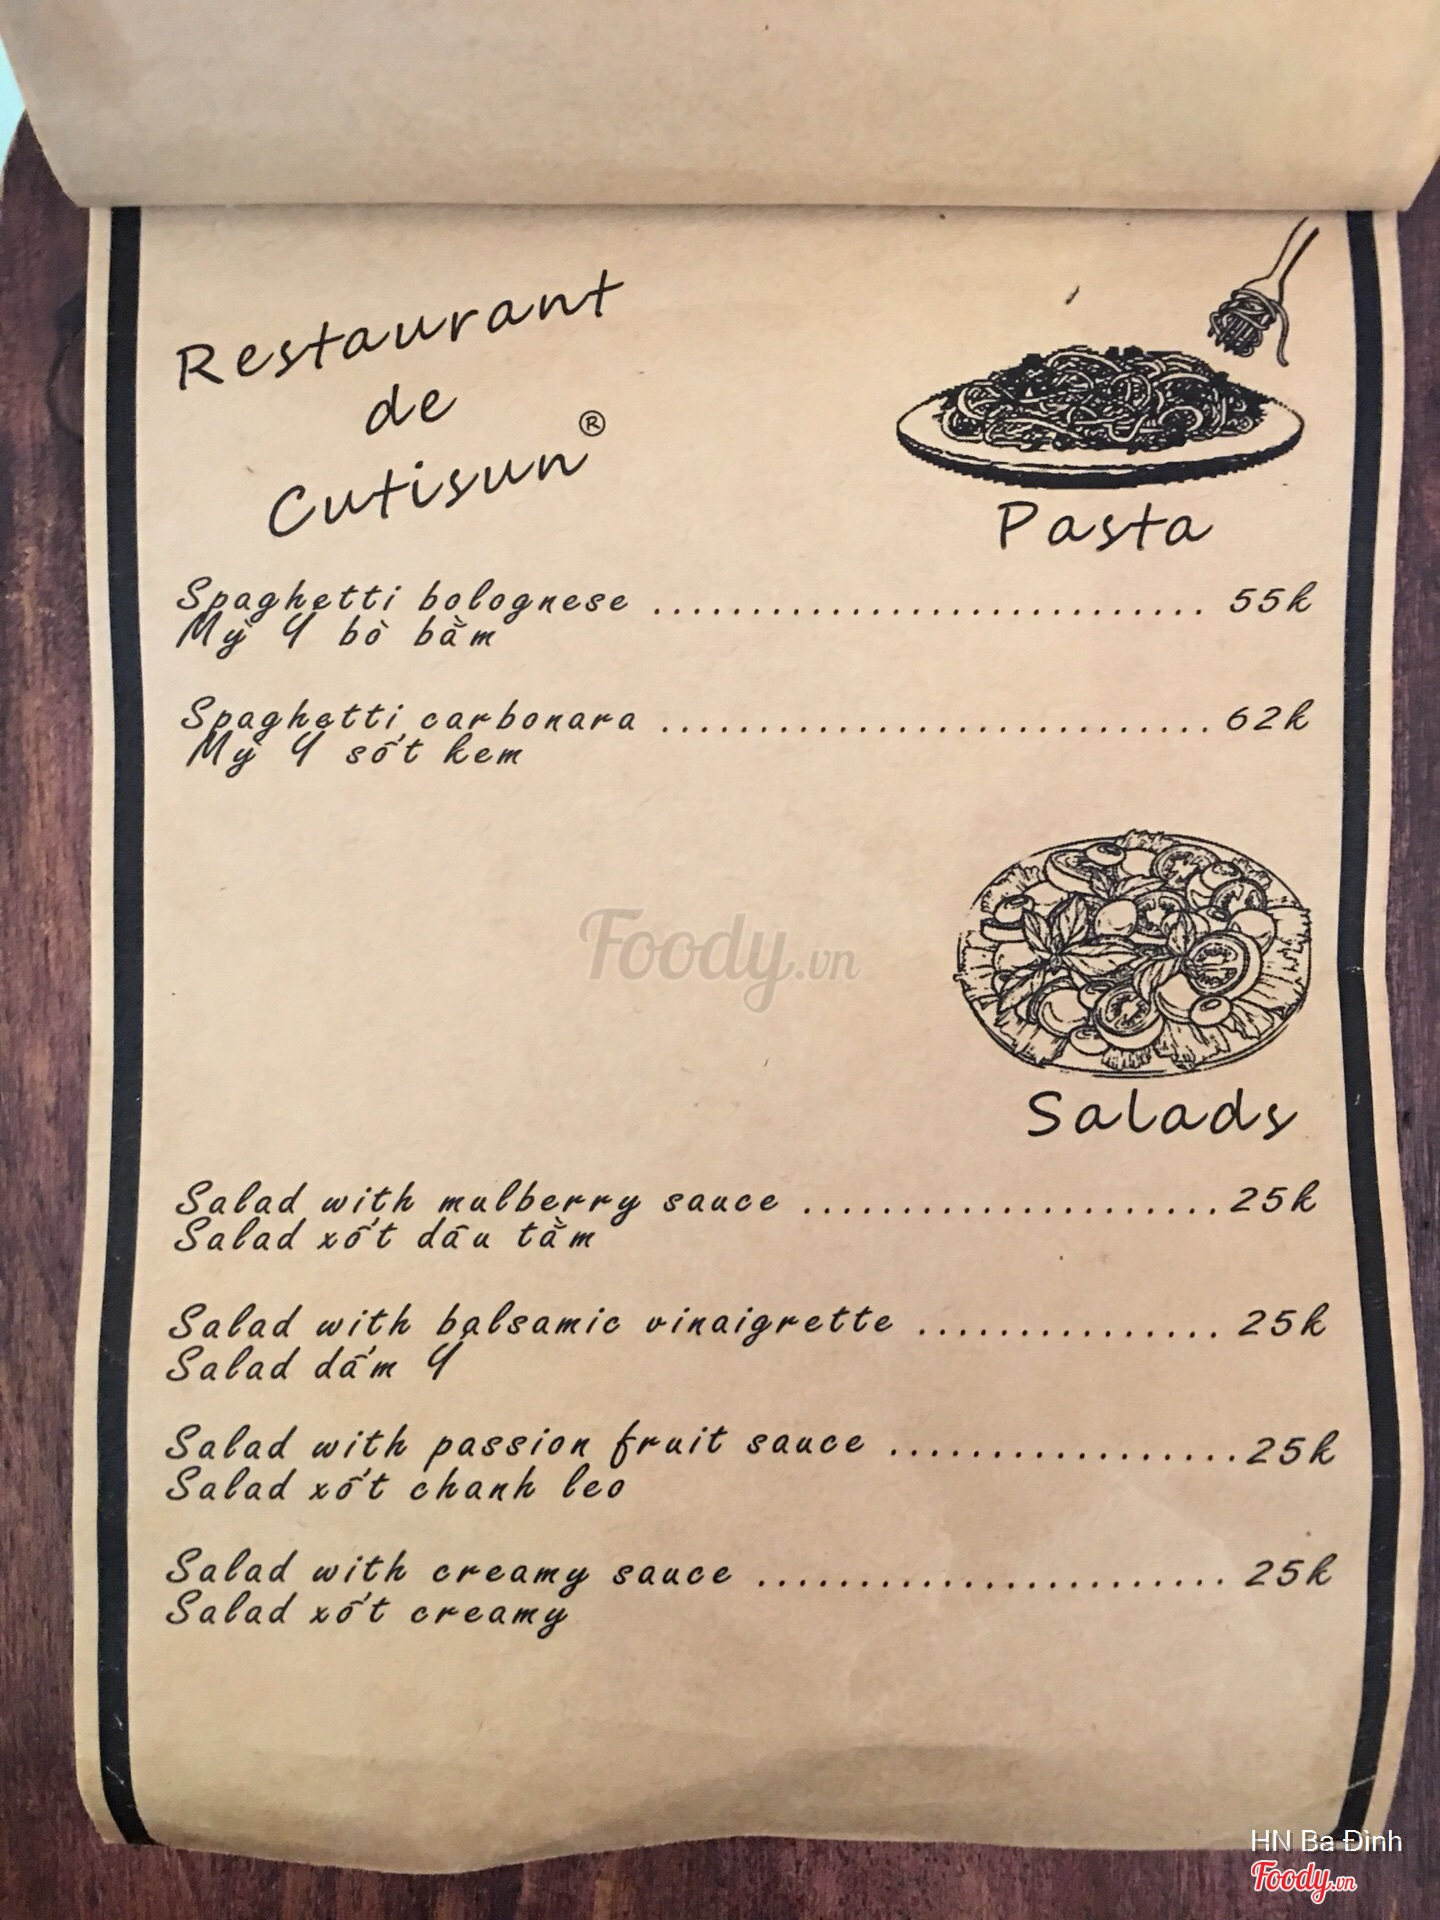 Restaurant
de
Cutisun®
Pasta
Spaghetti bolognese ............................ 55k
Mỳ Ý bò bằm
Spaghetti carbonara ............................ 62k
Mỳ Ý sốt kem
Foody.vn
Salads
Salad with mulberry sauce ..................... 25k
Salad xốt dâu tằm
Salad with balsamic vinaigrette ............... 25k
Salad dấm Ý
Salad with passion fruit sauce ................. 25k
Salad xốt chanh leo
Salad with creamy sauce ....................... 25k
Salad xốt creamy
HN Ba Đình
Foody.vn